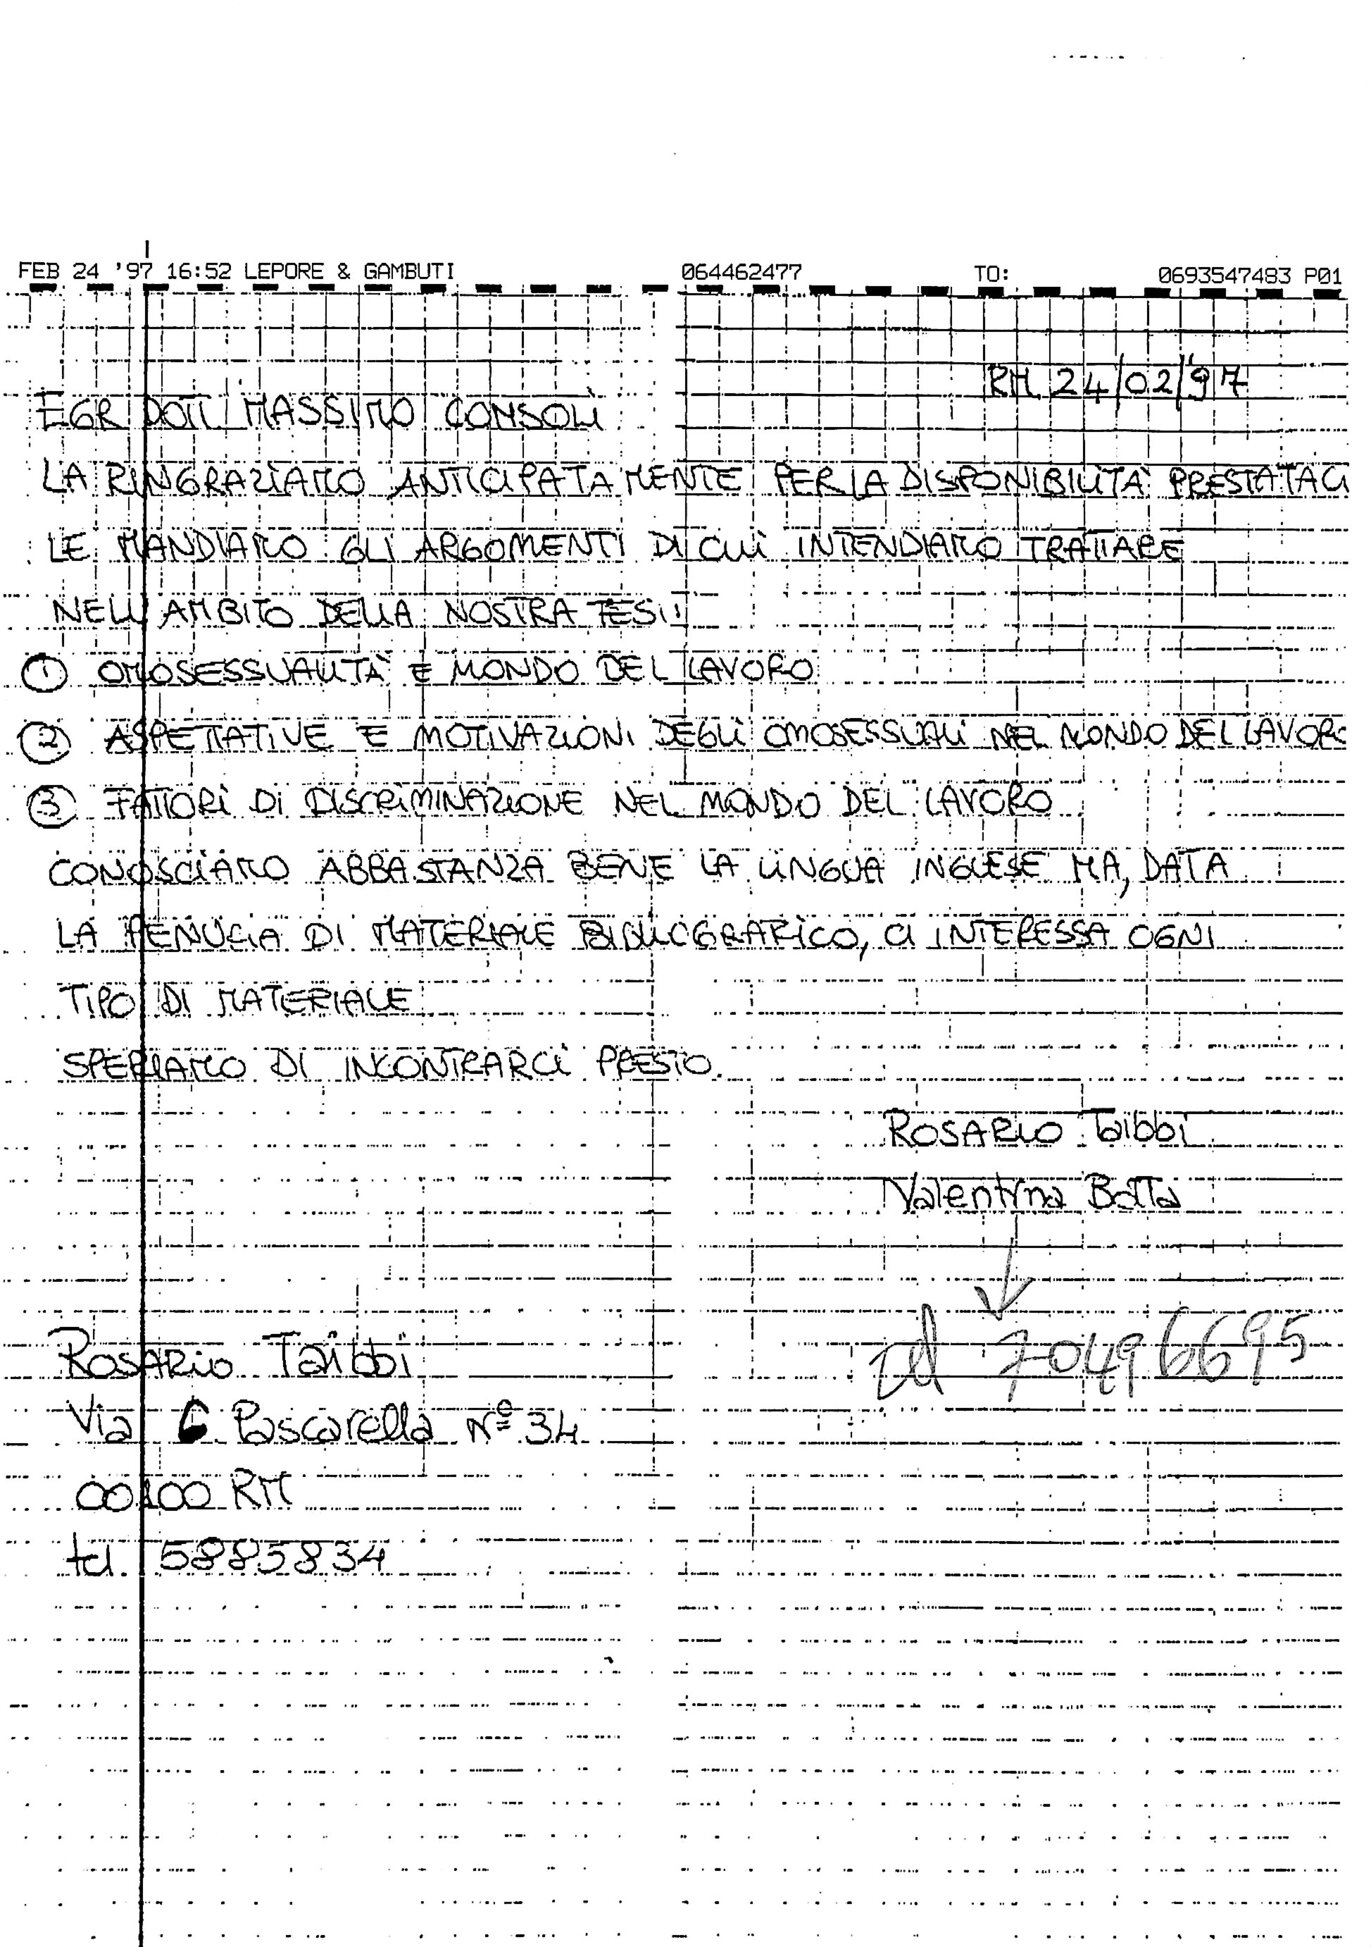 FEB 24 '97 16:52 LEPORE & GAMBUTI 064462477 TO: 0693547483 P01
RM 24/02/97
EGR DOTT. MASSIMO CONSOLI
LA RINGRAZIAMO ANTICIPATAMENTE PER LA DISPONIBILITÀ PRESTATACI
LE MANDIAMO GLI ARGOMENTI DI CUI INTENDIAMO TRATTARE
NELL'AMBITO DELLA NOSTRA TESI:
1 OMOSESSUALITÀ E MONDO DEL LAVORO
2 ASPETTATIVE E MOTIVAZIONI DEGLI OMOSESSUALI NEL MONDO DEL LAVORO
3 FATTORI DI DISCRIMINAZIONE NEL MONDO DEL LAVORO
CONOSCIAMO ABBASTANZA BENE LA LINGUA INGLESE MA, DATA
LA PENURIA DI MATERIALE BIBLIOGRAFICO, CI INTERESSA OGNI
TIPO DI MATERIALE
SPERIAMO DI INCONTRARCI PRESTO.
ROSARIO Taibbi
Valentina Botta
tel 70496695
ROSARIO Taibbi
Via C Pascarella N° 34
00100 RM
tel. 5885834